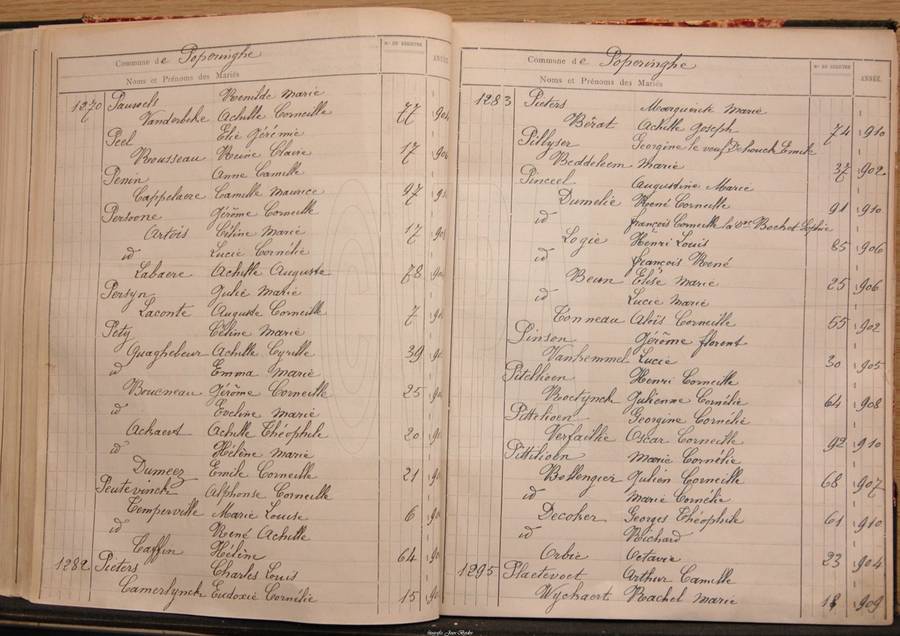 Commune de Poperinghe
Nos DU REGISTRE
ANNÉE
Noms et Prénoms des Mariés
1270 Pauwels Romilde Marie
Vanderbeke Achille Corneille 77 904
Peel Elie Jérémie
Rousseau Reine Claire 17 90
Penin Anne Camille
Cappelaere Camille Maurice 97 9
Persoone Jérôme Corneille
Artois Céline Marie 17 90
id Lucie Cornélie
Labaere Achille Auguste 78 90
Persyn Julie Marie
Laconte Auguste Corneille 7 90
Pety Céline Marie
Quaghebeur Achille Cyrille 39 90
id Emma Marie
Boucneau Jérôme Corneille 25 90
id Eveline Marie
Ackaert Achille Théophile 20 90
id Hélène Marie
Dumeez Emile Corneille 21 90
Peutevinck Alphonse Corneille
Temperville Marie Louise 6 90
id René Achille
Caffin Hélène 64 90
1282 Pieters Charles Louis
Camerlynck Eudoxie Cornélie 15 90
Commune de Poperinghe
Nos DU REGISTRE
ANNÉE
Noms et Prénoms des Mariés
1283 Pieters Marguerite Marie
Bérat Achille Joseph 74 910
Pillyser Georgine le veuf Dehouck Emile
Beddeleem Marie 37 902
Pinceel Augustine Marie
Dumelie René Corneille 91 910
id François Corneille la Vve Bochet Sophie
Logie Henri Louis 85 906
id François René
Beun Elise Marie 25 906
id Lucie Marie
Conneau Aloïs Corneille 55 902
Pinson Jérôme Florent
Vanhemmel Lucie 30 905
Pitelhoen Henri Corneille
Roetynck Julienne Cornélie 64 908
Pittilioen Georgine Cornélie
Verfaillie Oscar Corneille 92 910
Pittilioen Marie Cornélie
Bollengier Julien Corneille 68 907
id Marie Cornélie
Decoker Georges Théophile 61 910
id Richard
Orbie Octavie 23 904
1295 Plaetevoet Arthur Camille
Wyckaert Rachel Marie 18 909